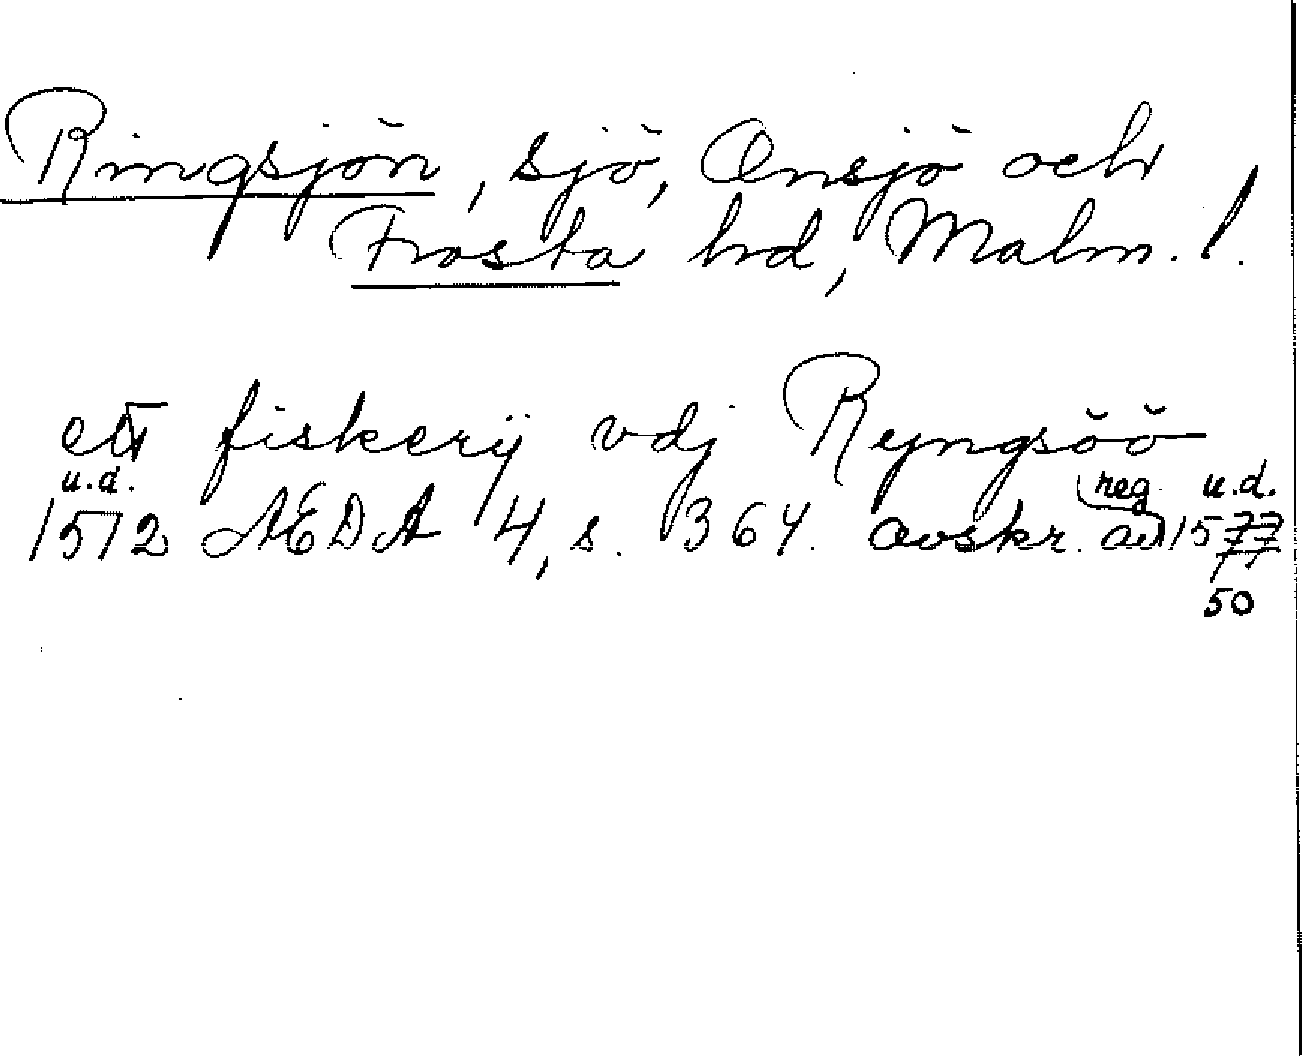 Ringsjön, sjö, Onsjö och
Frosta hd, Malm. l.
ett fiskerij vdj Ryngsöö
u.d. reg u.d.
1572 AEDA 4, s. 364. avskr. av 1577
50